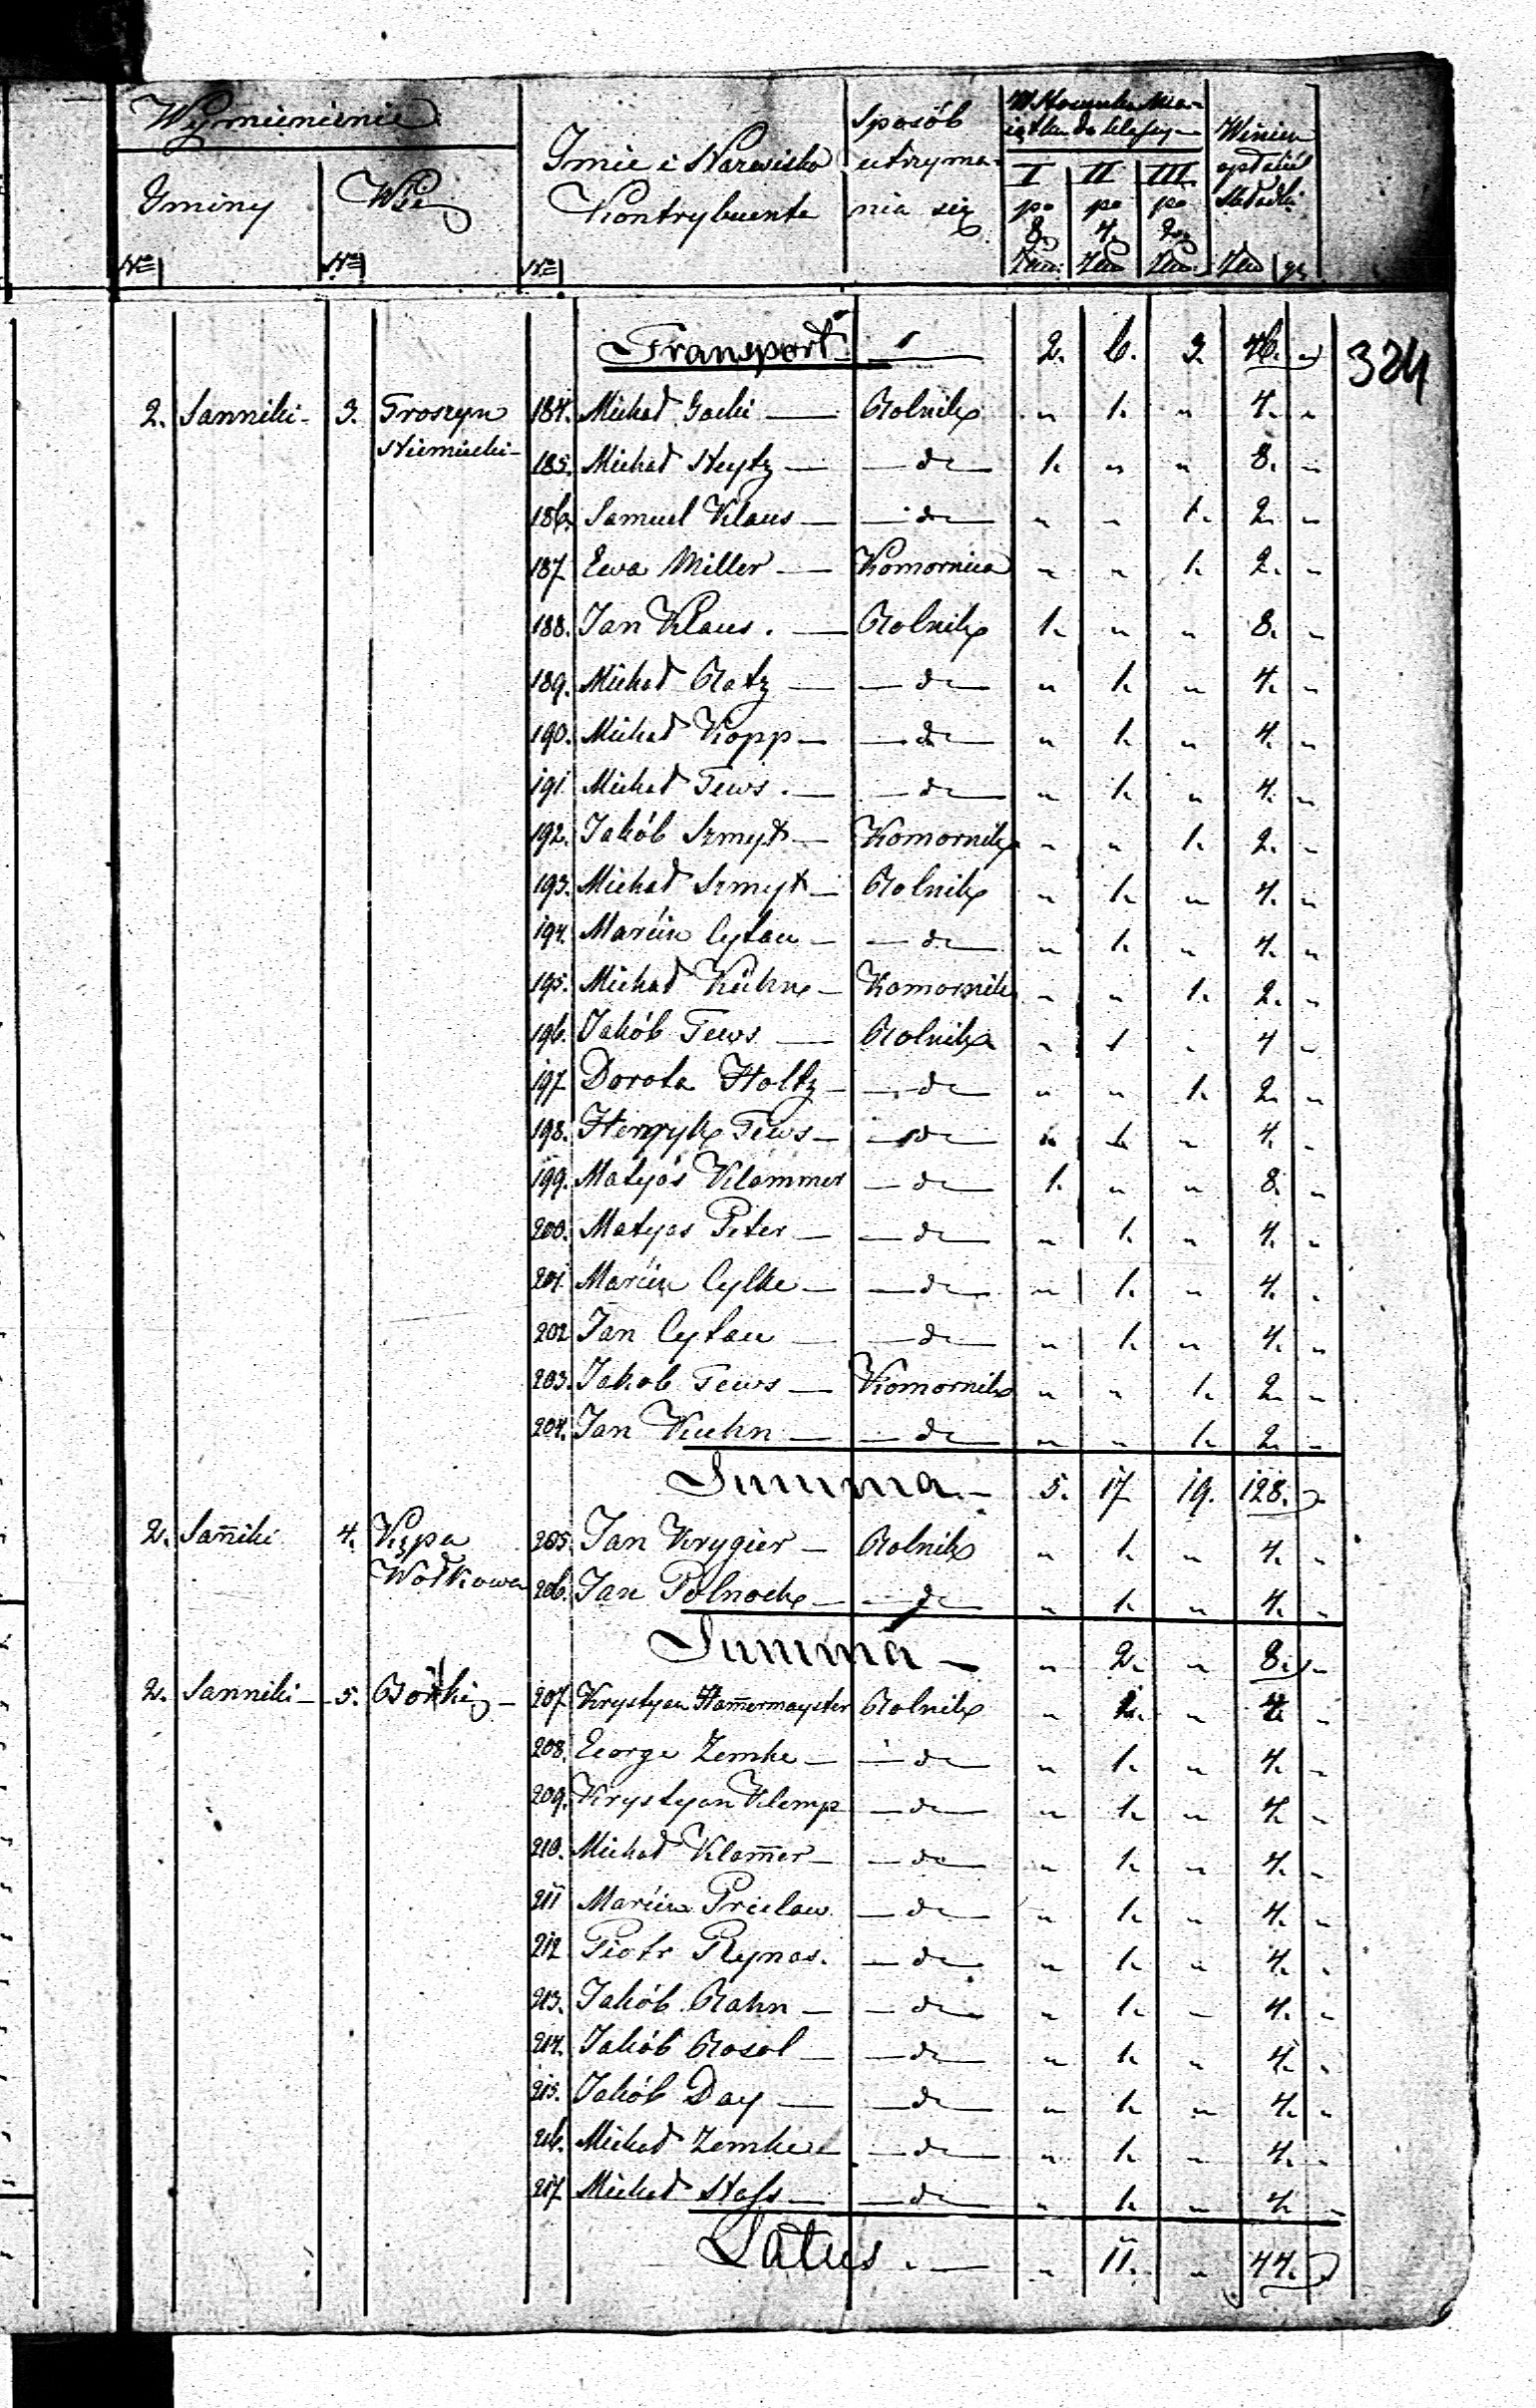 Wymienienie
Gminy
Wsi
Nro
Nro
Imie i Nazwisko
Kontrybuenta
Nro
Sposób
utrzyma-
nia się
W Stosunku Mai-
ątku do klassy
I II III
po po po
8. 4. 2.
Złn. Złn. Złn.
Winien
opłacić
Składki
Złn gr
Transport 2. 6. 3. 46. "
324
2. Sanniki 3. Troszyn 184. Michał Gacki — Rolnik " 1. " 4. "
Niemiecki 185. Michał Heytz — — do — 1. " " 8. "
186. Samuel Klaus — — do — " " 1. 2. "
187. Ewa Miller — Komornica " " 1. 2. "
188. Jan Klaus. — Rolnik 1. " " 8. "
189. Michał Ratz — — do — " 1. " 4. "
190. Michał Kopp — — do — " 1. " 4. "
191. Michał Tews. — — do — " 1. " 4. "
192. Jakób Szmyt — Komornik " " 1. 2. "
193. Michał Szmyt — Rolnik " 1. " 4. "
194. Marcin Cytau — — do — " 1. " 4. "
195. Michał Kühn — Komornik " " 1. 2. "
196. Jakób Tews — Rolnik " 1 " 4 "
197 Dorota Holtz — — do — " " 1. 2. "
198. Henryk Tews — — do — " 1. " 4. "
199. Matyás Klammer — do — 1. " " 8. "
200. Matyas Peter — — do — " 1. " 4. "
201. Marcin Cylke — — do — " 1. " 4. "
202 Jan Cytau — — do — " 1. " 4. "
203. Jakob Tews — Komornik " " 1. 2. "
204. Jan Kuhn — — do — " " 1. 2. "
Summa — 5. 17 19. 128. "
2. Sañiki 4. Kępa 205. Jan Krygier — Rolnik " 1. " 4. "
Wolkowa 206. Jan Polnock — — do — " 1. " 4. "
Summa — " 2. " 8. "
2. Sanniki — 5. Borki — 207. Krystyan Ham̃ermayster Rolnik " 1. " 4. "
208. George Zemke — — do — " 1. " 4. "
209. Krystyan Klemp — do — " 1. " 4. "
210. Michał Klam̃er — — do — " 1. " 4. "
211 Marcin Prielaw. — do — " 1. " 4. "
212 Piotr Rynas. — do — " 1. " 4. "
213. Jakób Rahn — — do — " 1. " 4. "
214. Jakób Rosol — — do — " 1. " 4. "
215. Jakób Day — — do — " 1. " 4. "
216. Michał Zemke — — do — " 1. " 4. "
217. Michał Hass — — do — " 1. " 4. "
Latus. — " 11. " 44. "